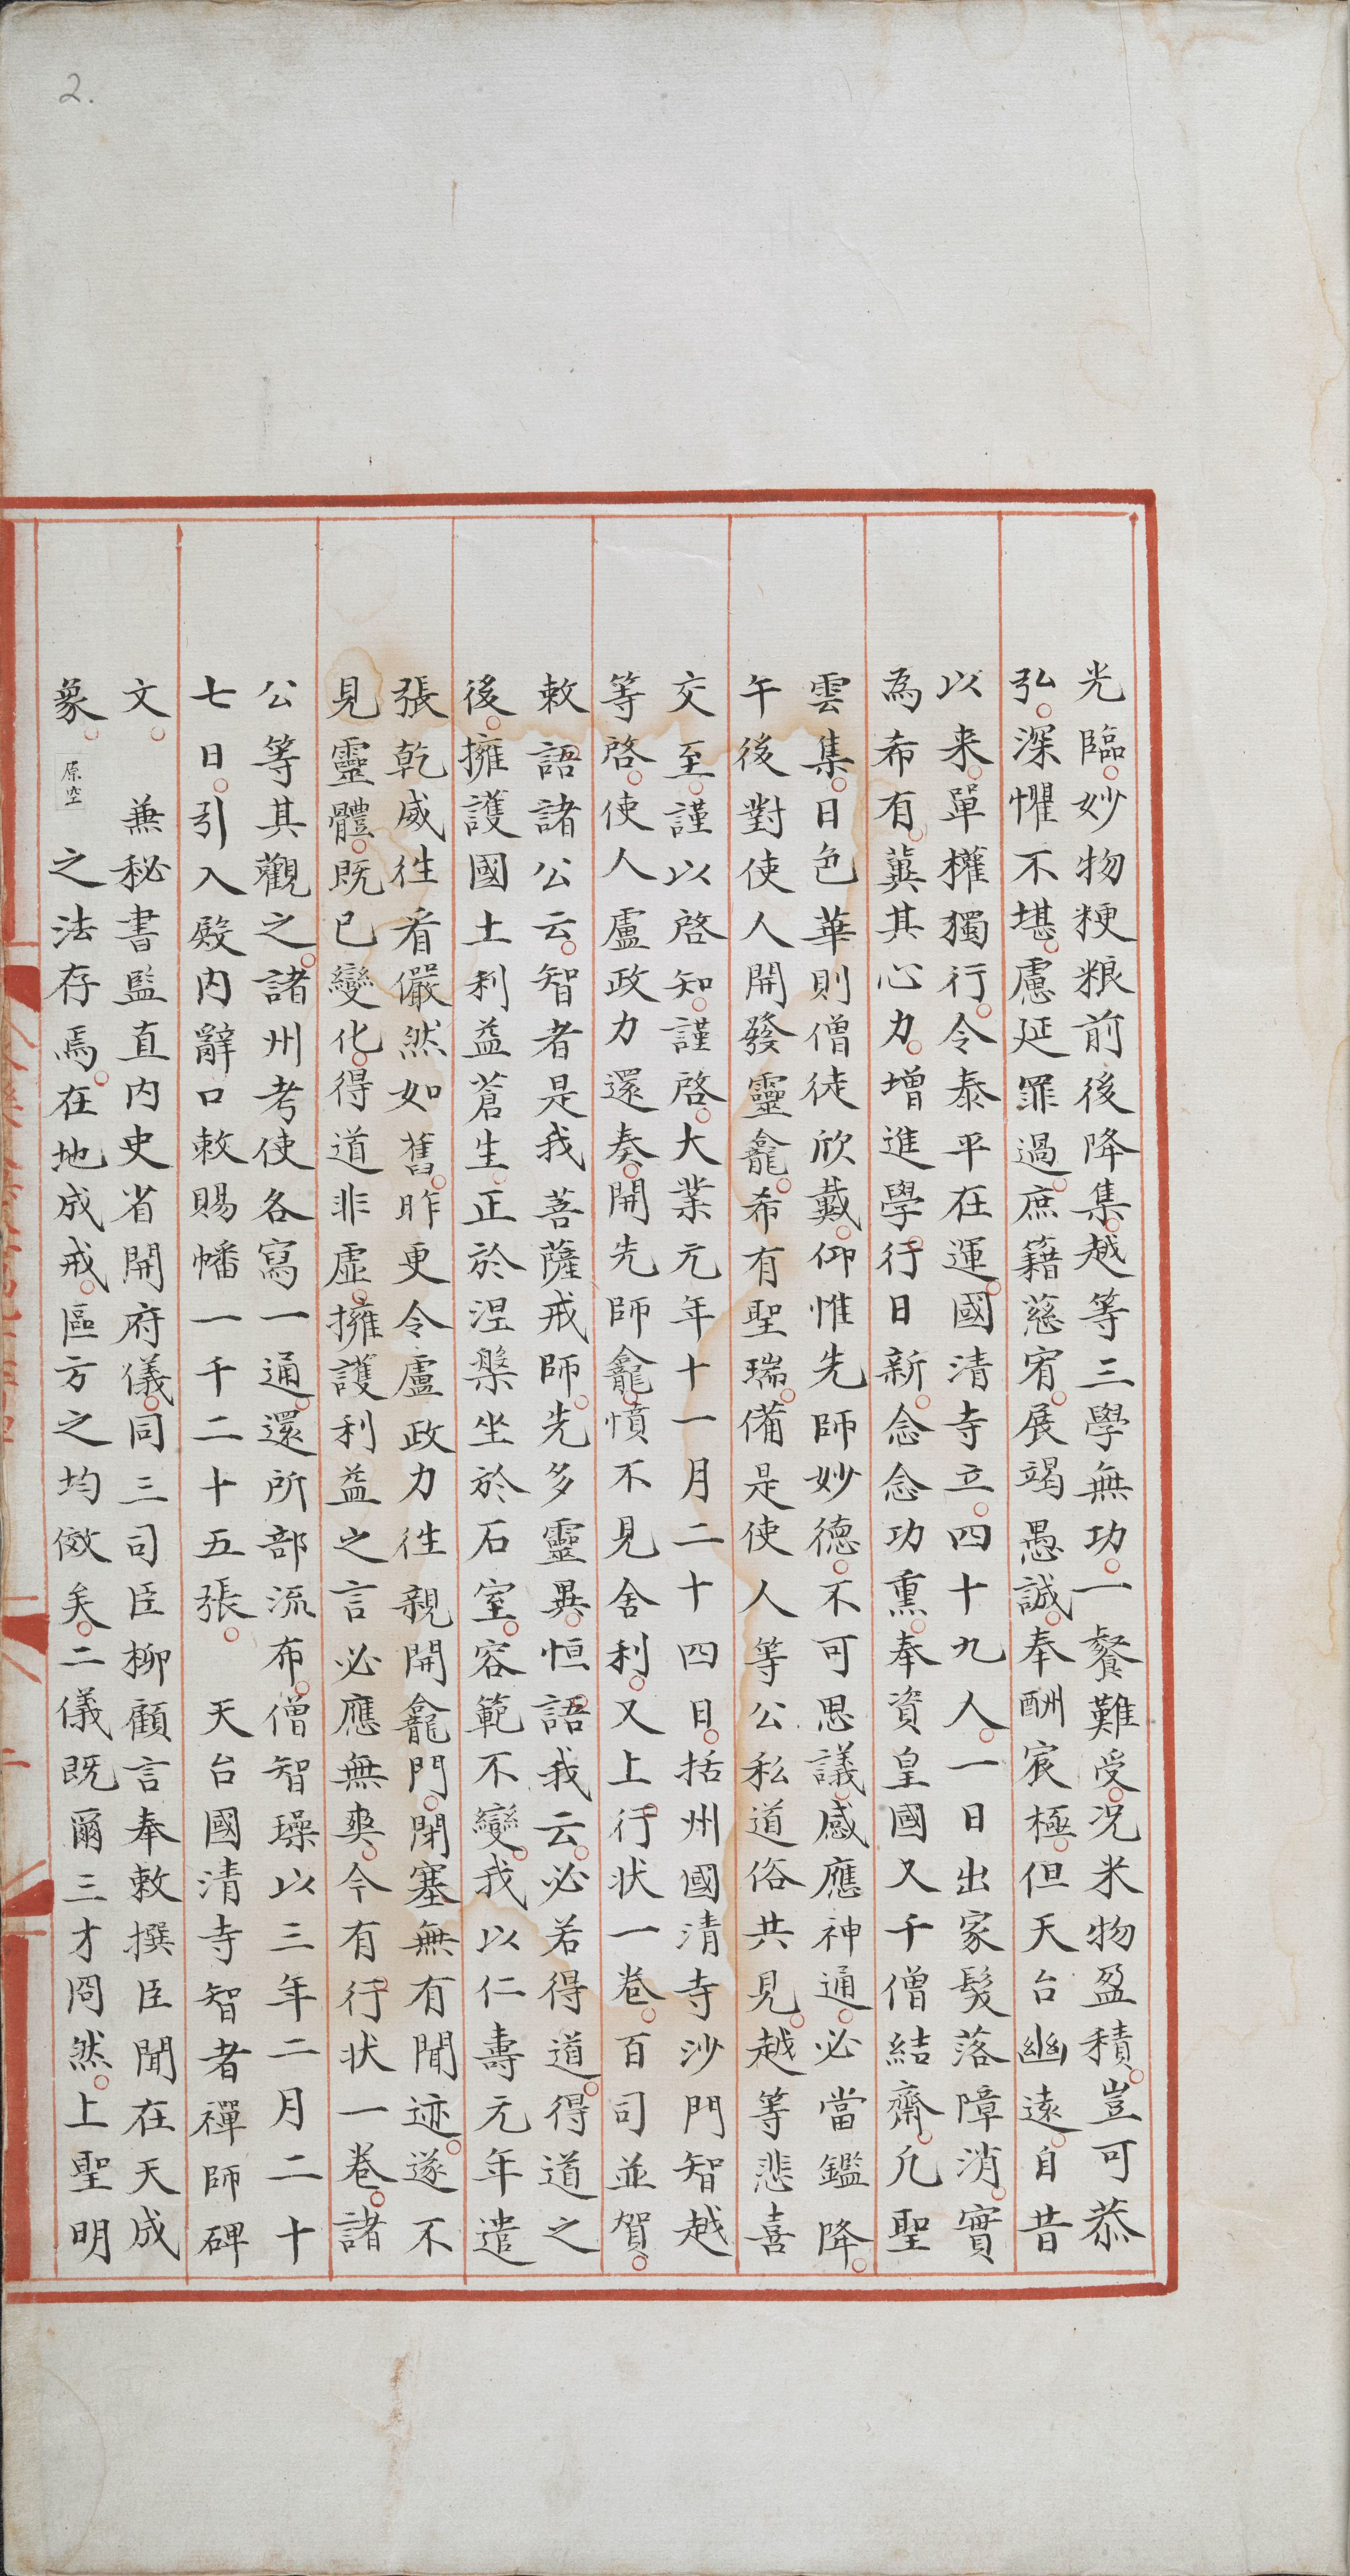 2.
光臨妙物粳粮前後降集越等三學無功一餐難受况米物盈積豈可恭
弘深懼不堪慮延罪過庶籍慈宥展竭愚誠奉酬宸極但天台幽遠自昔
以来單權獨行令泰平在運國清寺立四十九人一日出家髮落障消實
為希有冀其心力增進學行日新念念功熏奉資皇國又千僧結齋凢聖
雲集日色華則僧徒欣戴仰惟先師妙德不可思議感應神通必當鑑降
午後對使人開發靈龕希有聖瑞備是使人等公私道俗共見越等悲喜
交至謹以啓知謹啓大業元年十一月二十四日括州國清寺沙門智越
等啓使人盧政力還奏開先師龕憤不見舍利又上行状一卷百司並賀
敕語諸公云智者是我菩薩戒師先多靈異恒語我云必若得道得道之
後擁護國土利益蒼生正於涅槃坐於石室容範不變我以仁壽元年遣
張乾威徃看儼然如舊昨更令盧政力徃親開龕門閉塞無有聞迹遂不
見靈體既已變化得道非虛擁護利益之言必應無爽今有行状一卷諸
公等其觀之諸州考使各寫一通還所部流布僧智璪以三年二月二十
七日引入殿内辭口敕賜幡一千二十五張　天台國清寺智者禪師碑
文　兼秘書監直内史省開府儀同三司臣柳顧言奉敕撰臣聞在天成
象原空之法存焉在地成戒區方之均倣矣二儀既爾三才罔然上聖明